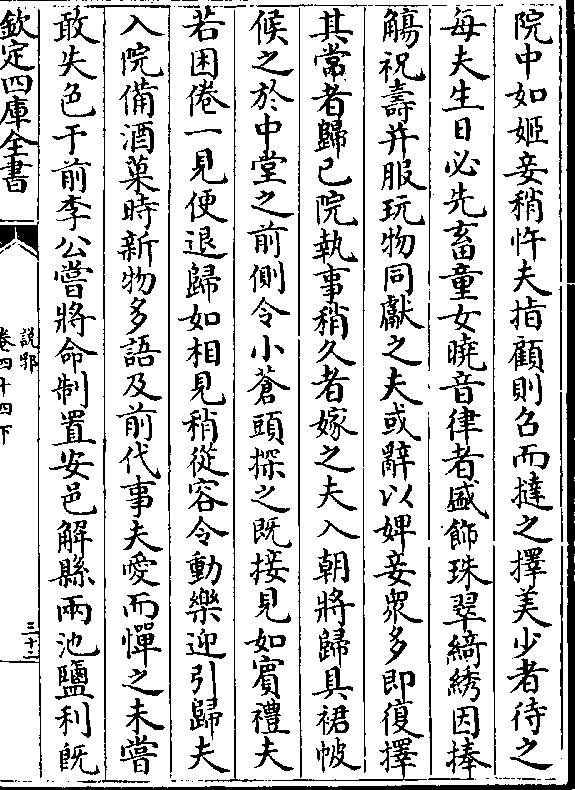 院中如姬妾稍忤夫指顧則召而撻之擇美少者待之
每夫生日必先畜童女曉音律者盛飾珠翠綺綉因捧
觴祝壽并服玩物同獻之夫或辭以婢妾衆多即復擇
其常者歸己院執事稍久者嫁之夫入朝將歸具裙帔
候之於中堂之前側令小蒼頭探之旣接見如賓禮夫
若困倦一見便退歸如相見稍從容令動樂迎引歸夫
入院備酒菓時新物多語及前代事夫愛而憚之未嘗
敢失色于前李公嘗將命制置安邑解縣兩池鹽利旣
欽定四庫全書
說郛
卷四十四下
三十二